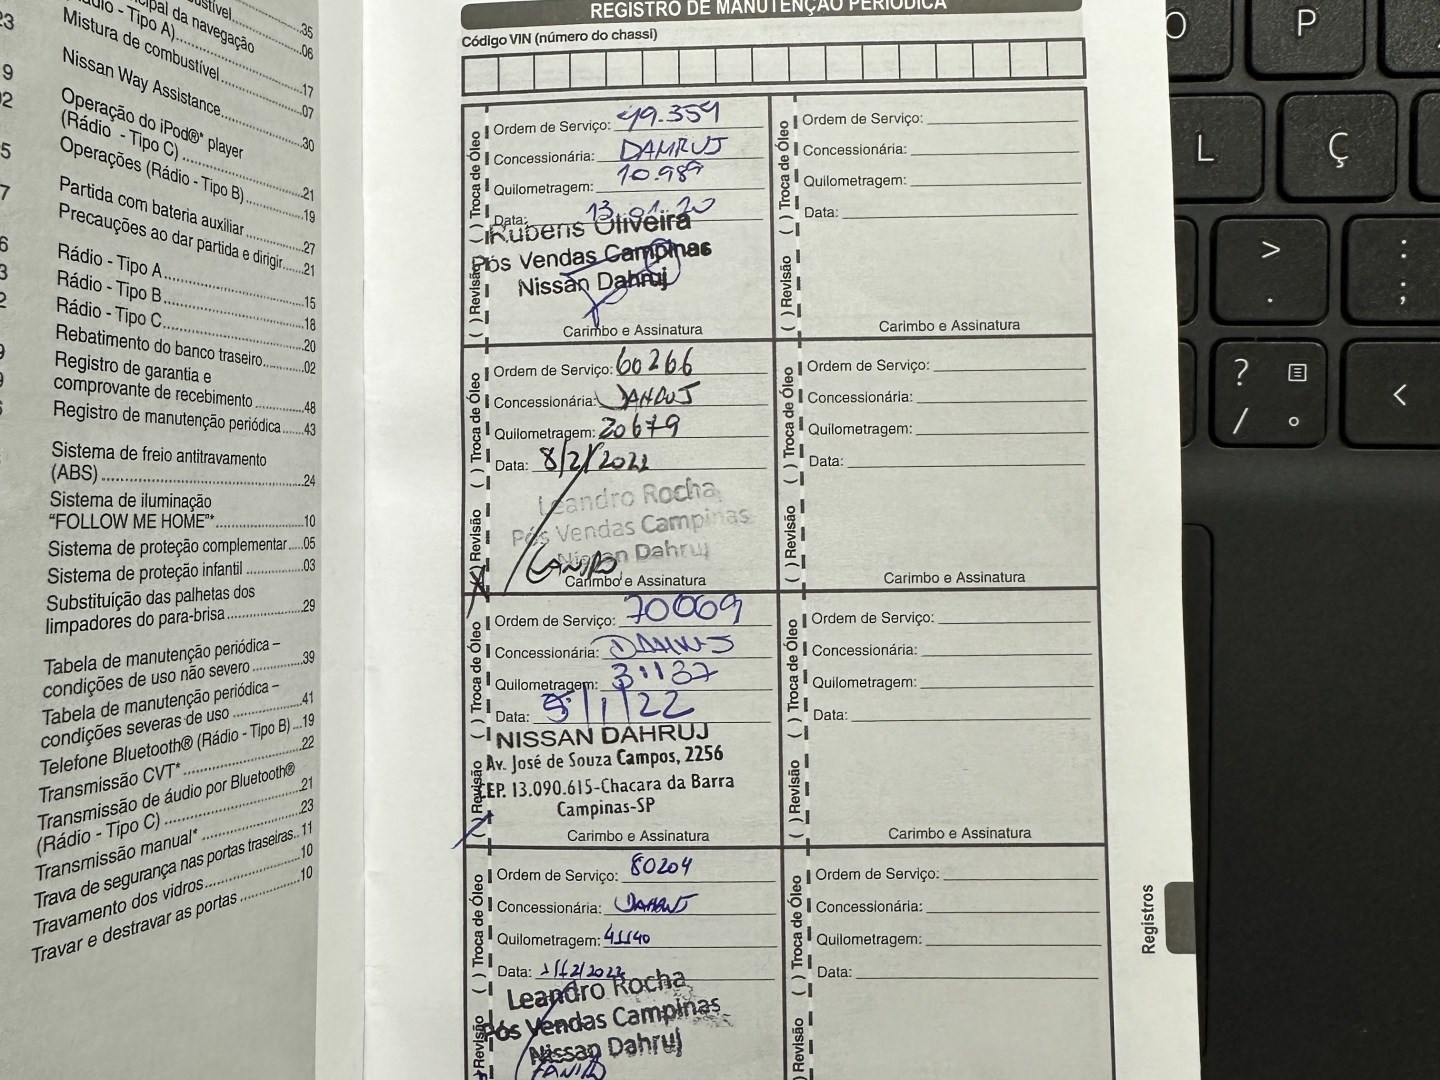 23
ustível
35
cipal da navegação
06
Rádio - Tipo A)
Mistura de combustível
17
9
07
02
Nissan Way Assistance
30
Operação do iPod®* player
(Rádio - Tipo C)
21
5
Operações (Rádio - Tipo B)
19
7
Partida com bateria auxiliar
27
Precauções ao dar partida e dirigir
21
6
Rádio - Tipo A
15
3
Rádio - Tipo B
18
2
Rádio - Tipo C
20
Rebatimento do banco traseiro
02
9
Registro de garantia e
comprovante de recebimento
48
Registro de manutenção periódica
43
Sistema de freio antitravamento
(ABS)
24
Sistema de iluminação
“FOLLOW ME HOME”*
10
Sistema de proteção complementar
05
Sistema de proteção infantil
03
Substituição das palhetas dos
limpadores do para-brisa
29
Tabela de manutenção periódica –
condições de uso não severo
39
Tabela de manutenção periódica –
condições severas de uso
41
Telefone Bluetooth® (Rádio - Tipo B)
19
Transmissão CVT*
22
Transmissão de áudio por Bluetooth®
(Rádio - Tipo C)
21
Transmissão manual*
23
Trava de segurança nas portas traseiras
11
Travamento dos vidros
10
Travar e destravar as portas
10
REGISTRO DE MANUTENÇÃO PERIÓDICA
Código VIN (número do chassi)
( ) Revisão ( ) Troca de Óleo
Ordem de Serviço: 49.359
Concessionária: DAHRUJ
Quilometragem: 10.989
Data: 13.01.20
Rubens Oliveira
Pós Vendas Campinas
Nissan Dahruj
Carimbo e Assinatura
( ) Revisão ( ) Troca de Óleo
Ordem de Serviço:
Concessionária:
Quilometragem:
Data:
Carimbo e Assinatura
(X) Revisão ( ) Troca de Óleo
Ordem de Serviço: 60266
Concessionária: DAHRUJ
Quilometragem: 20679
Data: 8/2/2021
Leandro Rocha
Pós Vendas Campinas
Nissan Dahruj
Carimbo e Assinatura
( ) Revisão ( ) Troca de Óleo
Ordem de Serviço:
Concessionária:
Quilometragem:
Data:
Carimbo e Assinatura
( ) Revisão ( ) Troca de Óleo
Ordem de Serviço: 70069
Concessionária: DAHRUJ
Quilometragem: 31137
Data: 5/1/22
NISSAN DAHRUJ
Av. José de Souza Campos, 2256
CEP. 13.090.615-Chacara da Barra
Campinas-SP
Carimbo e Assinatura
( ) Revisão ( ) Troca de Óleo
Ordem de Serviço:
Concessionária:
Quilometragem:
Data:
Carimbo e Assinatura
Revisão ( ) Troca de Óleo
Ordem de Serviço: 80204
Concessionária: DAHRUJ
Quilometragem: 41140
Data:
Leandro Rocha
Pós Vendas Campinas
Nissan Dahruj
) Revisão ( ) Troca de Óleo
Ordem de Serviço:
Concessionária:
Quilometragem:
Data:
Registros
O
P
L
Ç
>
.
:
;
?
/
°
<